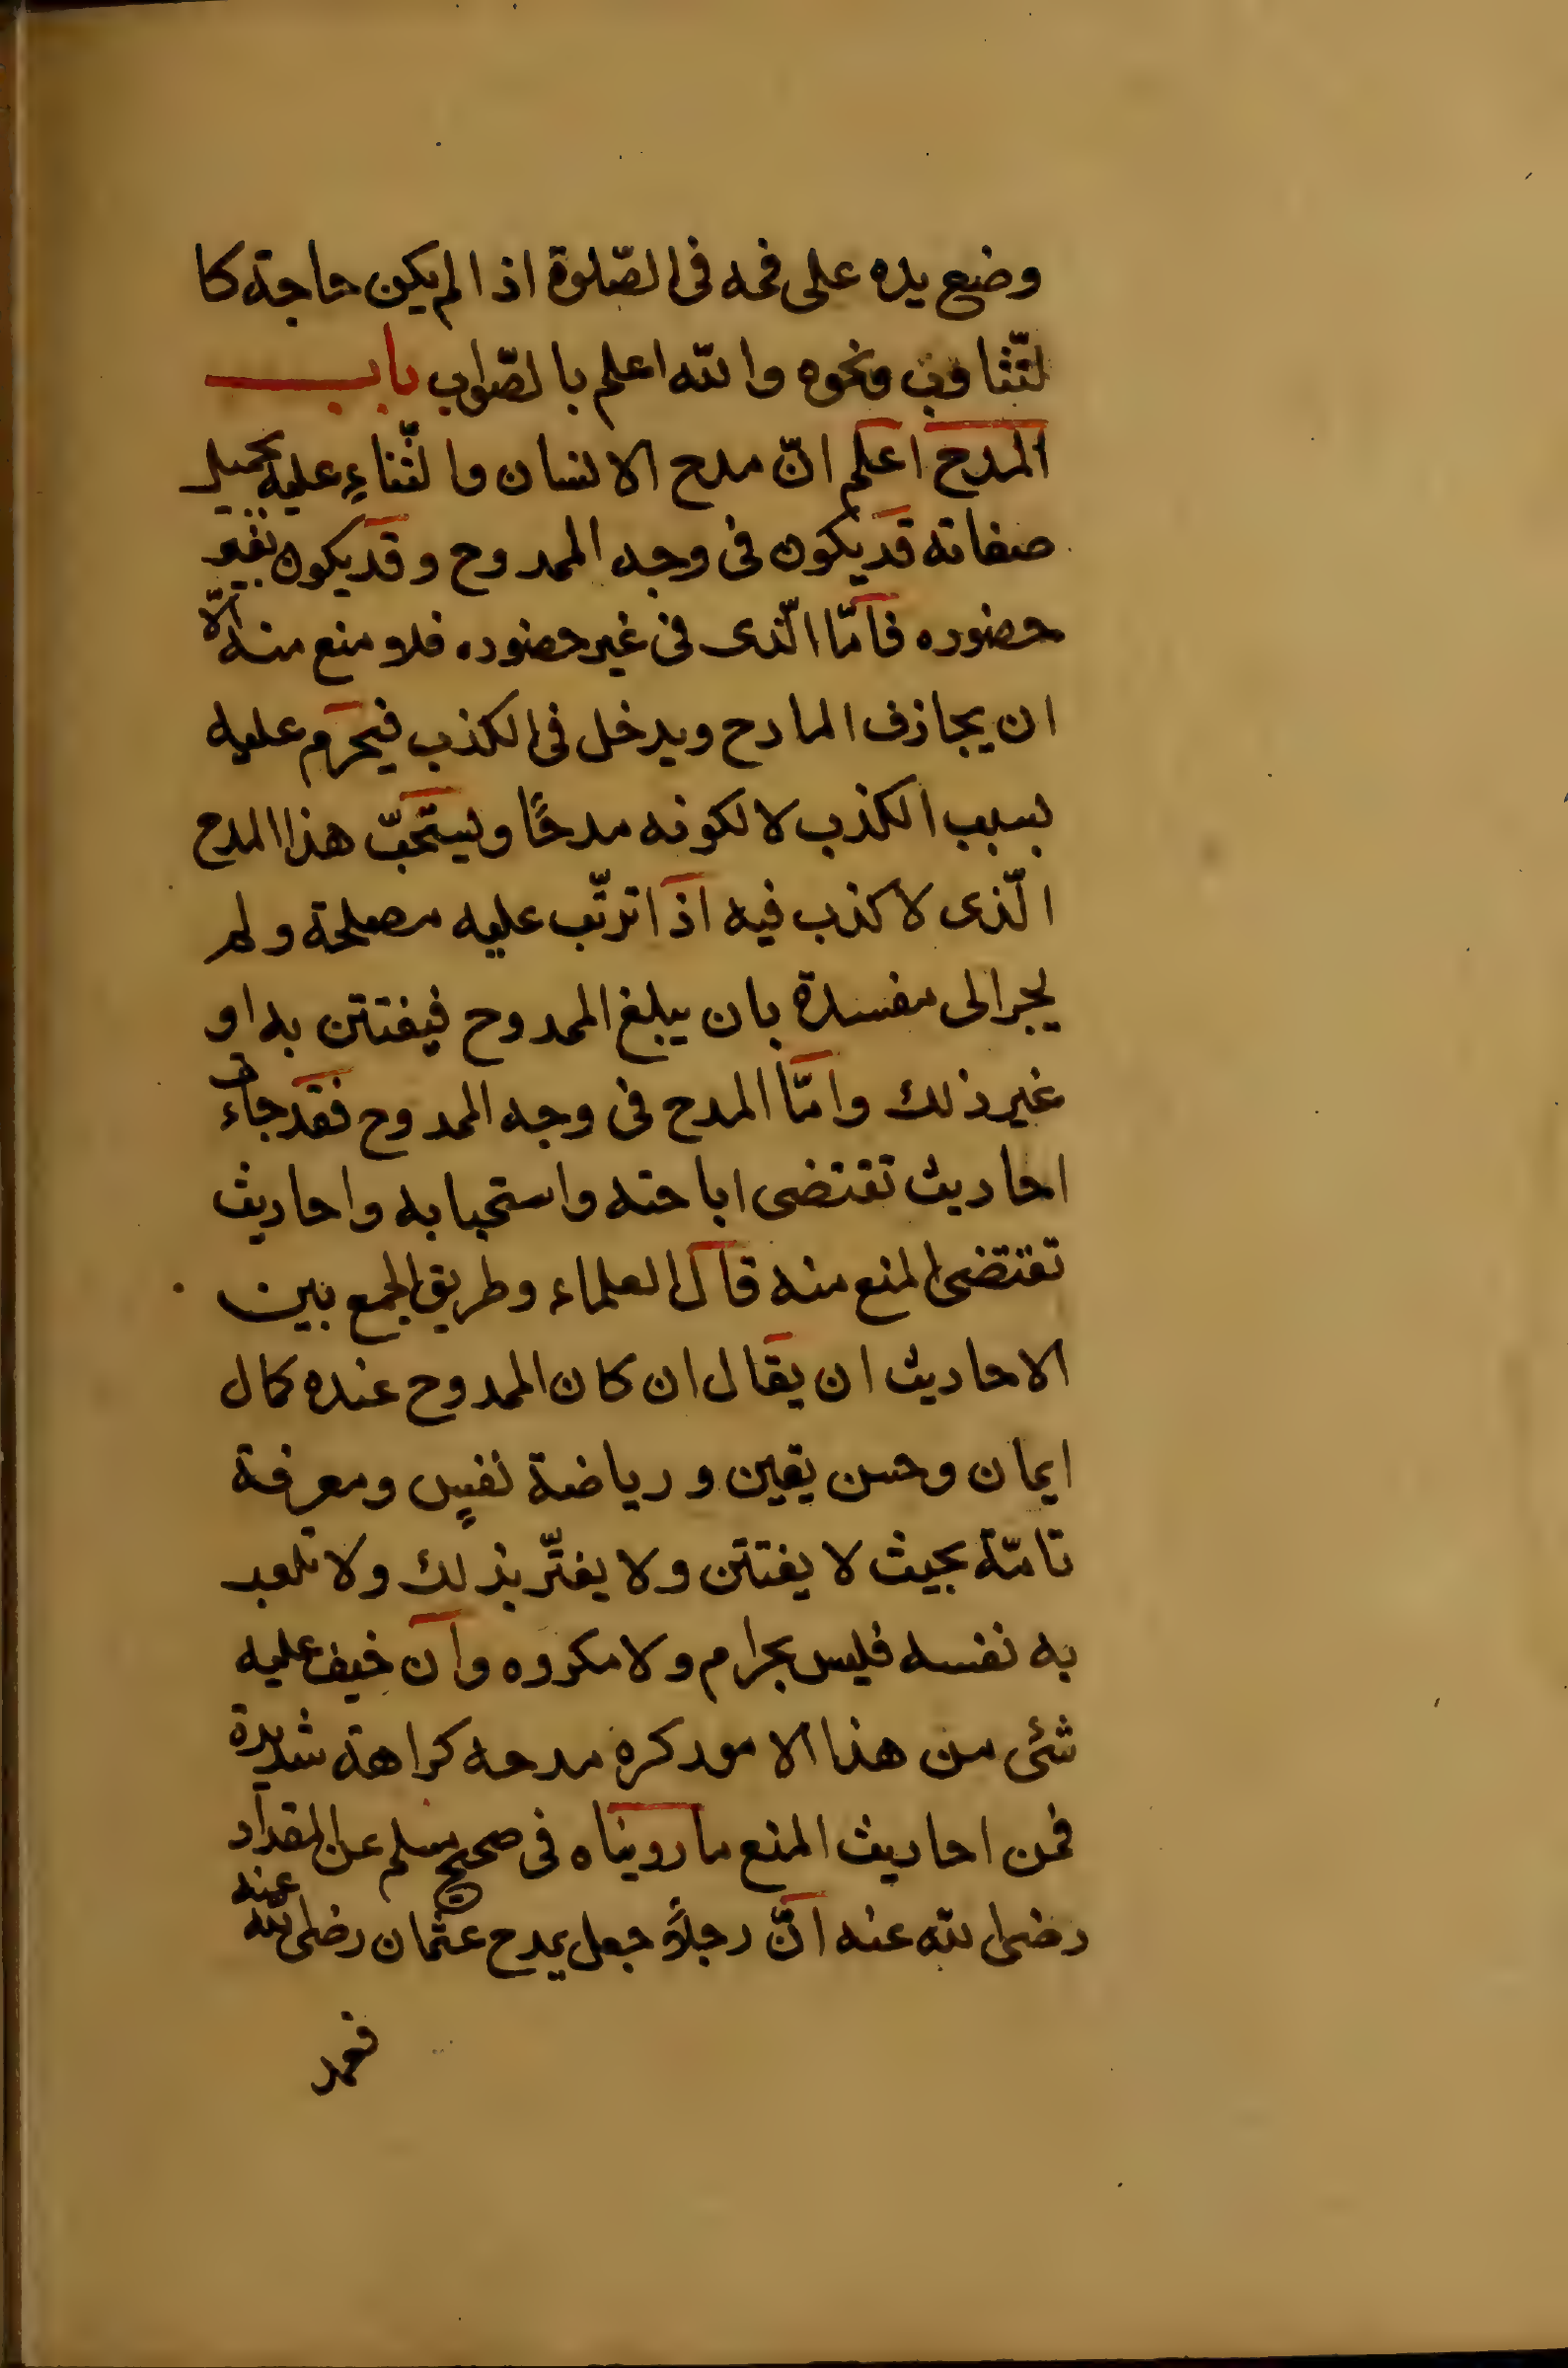 وضع يده على فمه فى الصّلوة اذا لم يكن حاجة كا
لتّثاوب ونحوه والله اعلم بالصّواب باب
المدح اعلم انّ مدح الانسان والثّناءِ عليه بجميل
صفاته قد يكون فى وجه الممدوح وقد يكون بغير
حضوره فامّا الّذى فى غير حضوره فلا منع منه الّا
ان يجازف المادح ويدخل فى الكذب فيحرّم عليه
بسبب الكذب لا لكونه مدحًا ويستحبّ هذا المدح
الّذى لا كذب فيه اذا ترتّب عليه مصلحة ولم
يجر الى مفسدة بان يبلغ الممدوح فيفتتن به او
غير ذلك وامّا المدح فى وجه الممدوح فقد جاءت
احاديث تقتضى اباحته واستحبابه واحاديث
تقتضى المنع منه قال العلماء وطريق الجمع بين
الاحاديث ان يقال ان كان الممدوح عنده كمال
ايمان وحسن يقين ورياضة نفسٍ ومعرفة
تامّة بحيث لا يفتتن ولا يغترّ بذلك ولا تلعب
به نفسه فليس بحرام ولا مكروه وان خيف عليه
شئ من هذا الامور كره مدحه كراهة شديدة
فمن احاديث المنع ما رويناه فى صحيح مسلم عن المقداد
رضى الله عنه انّ رجلًا جعل يمدح عثمان رضى الله عنه
فعمد